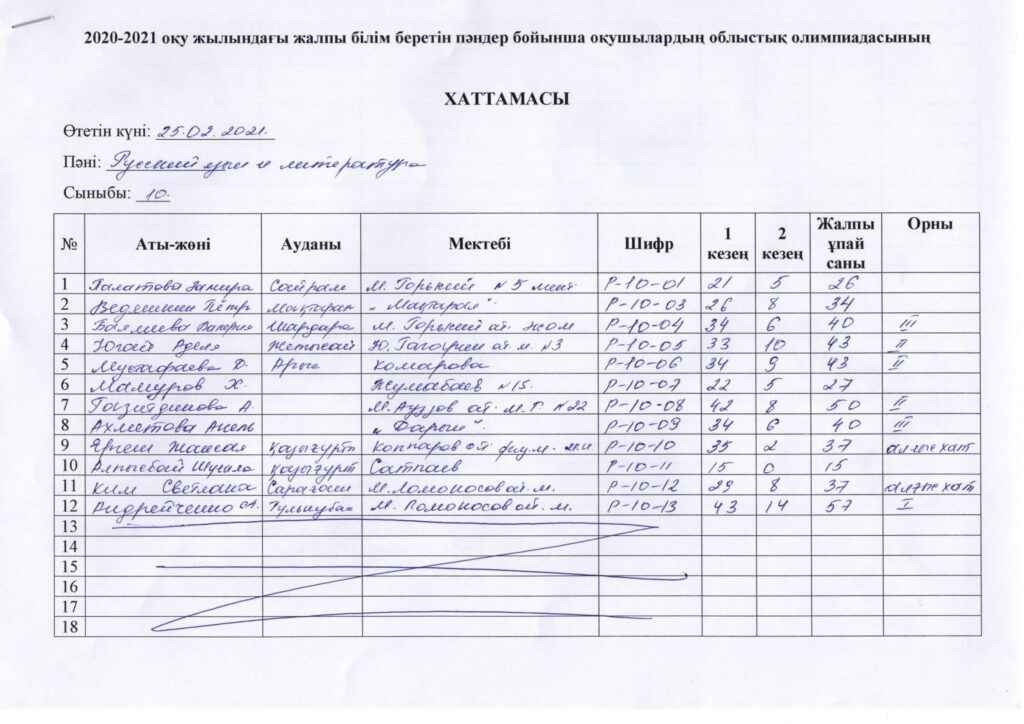 2020-2021 оқу жылындағы жалпы білім беретін пәндер бойынша оқушылардың облыстық олимпиадасының
ХАТТАМАСЫ
Өтетін күні: 25.02.2021.
Пәні: Русский язык и литература
Сыныбы: 10.
№ Аты-жөні Ауданы Мектебі Шифр 1 кезең 2 кезең Жалпы ұпай саны Орны
1 Халатова Замира Сайрам М. Горький №5 Р-10-01 21 5 26
2 Ведешкин Пётр Мақтарал „Мақтарал“ Р-10-03 26 8 34
3 Баялиева Шардара М. Горький ат. ЖОМ Р-10-04 34 6 40 III
4 Югай Аделя Жетысай Ю. Гагарин ат. м. №3 Р-10-05 33 10 43 II
5 Мустафаева Д. Арыс Комарова Р-10-06 34 9 43 II
6 Мамуров Х. Жумабаев №15. Р-10-07 22 5 27
7 А. М. Ауэзов ат. м. Г. №22 Р-10-08 42 8 50 II
8 Ахметова Анель „Дарын“ Р-10-09 34 6 40 III
9 Қазығұрт Р-10-10 35 2 37 алғыс хат
10 Қазығурт Сатпаев Р-10-11 15 0 15
11 Ким Светлана Сарағаш М. Ломоносов ат. м. Р-10-12 29 8 37 алғыс хат
12 М. Ломоносов ат. м. Р-10-13 43 14 57 I
13
14
15
16
17
18